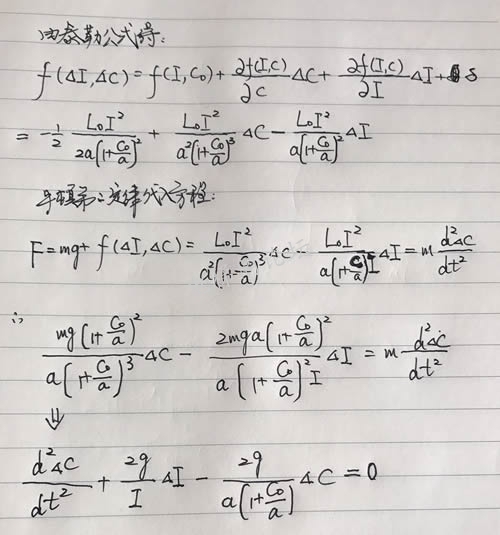 由泰勒公式得:
f(ΔI,ΔC) = f(I,C₀) + ∂f(I,C)/∂C ΔC + ∂f(I,C)/∂I ΔI + δ
= -1/2 L₀I²/(2a(1+C₀/a)²) + L₀I²/(a²(1+C₀/a)³) ΔC - L₀I²/(a(1+C₀/a)²) ΔI
牛顿第二定律代入方程:
F = mg + f(ΔI,ΔC) = L₀I²/(a²(1+C₀/a)³) ΔC - L₀I²/(a(1+C/a)I) ΔI = m d²ΔC/dt²
∴
mg(1+C₀/a)²/(a(1+C₀/a)³) ΔC - 2mga(1+C₀/a)²/(a(1+C₀/a)²I) ΔI = m d²ΔC/dt²
⇓
d²ΔC/dt² + 2g/I ΔI - 2g/(a(1+C₀/a)) ΔC = 0